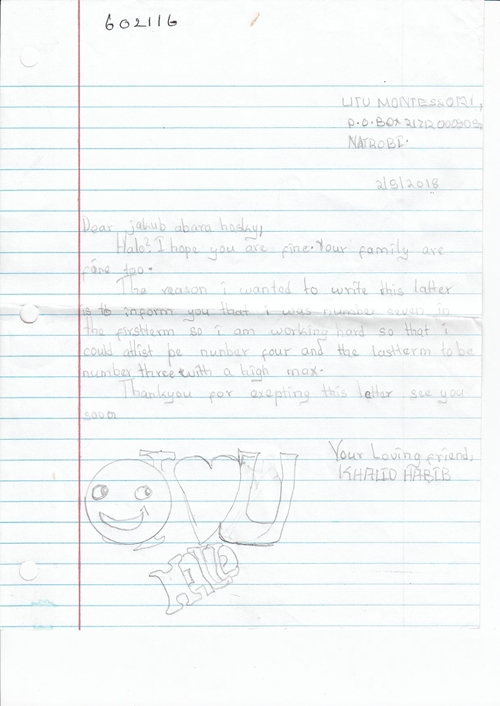 602116
LITU MONTESSORI,
P.O.BOX
NAIROBI.
2/8/2018
Dear jakub abara hosky,
Halo? I hope you are fine. Your family are
fine too.
The reason i wanted to write this latter
is to inform you that i was number seven in
the firstterm so i am working hard so that i
could atlist be number four and the lastterm to be
number three with a high max.
Thankyou for exepting this letter see you
soom
Your Loving friend,
KHALID HABIB
I U
Hallo